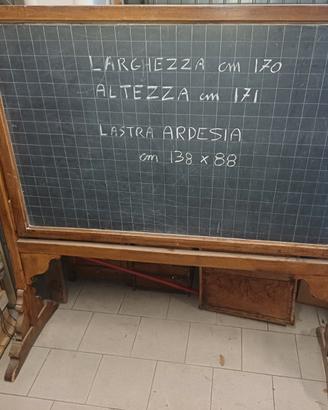 LARGHEZZA cm 170
ALTEZZA cm 171
LASTRA ARDESIA
cm 138 x 88